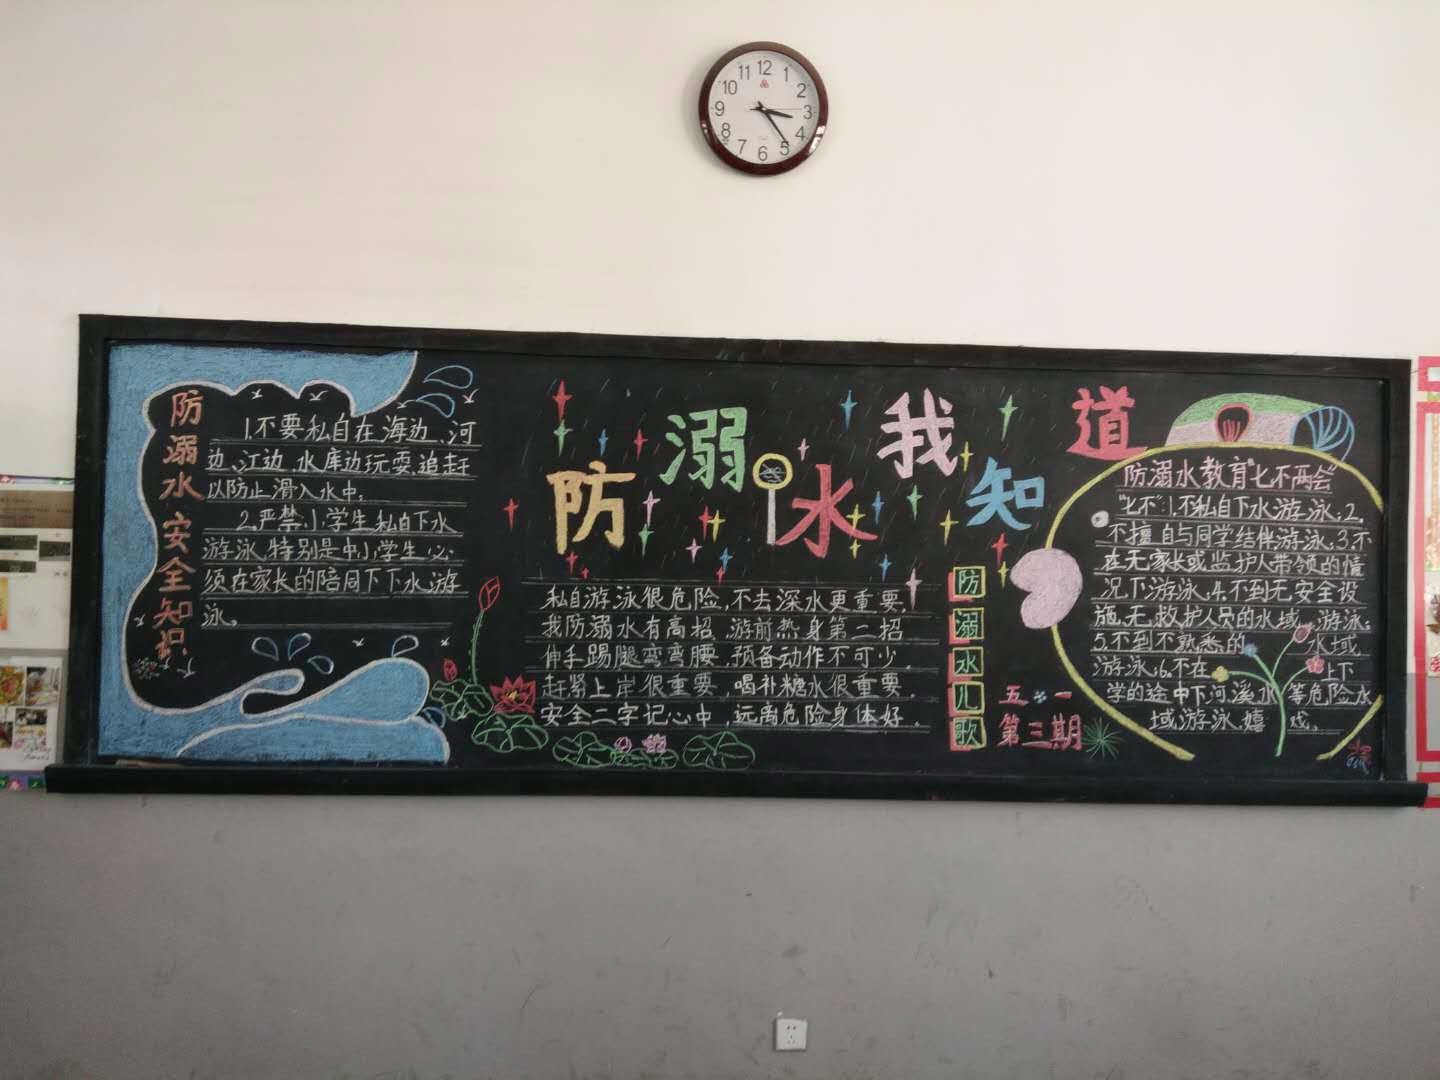 12
1
2
3
4
5
6
7
8
9
10
11
防溺水我知道
防溺水安全知识
1.不要私自在海边、河
边、江边、水库边玩耍、追赶
以防止滑入水中。
2.严禁小学生私自下水
游泳,特别是中小学生必
须在家长的陪同下下水游
泳。
私自游泳很危险,不去深水更重要,
我防溺水有高招,游前热身第二招
伸手踢腿弯弯腰,预备动作不可少,
赶紧上岸很重要,喝补糖水很重要,
安全二字记心中,远离危险身体好.
防溺水儿歌
五 一
第三期
防溺水教育“七不两会”
“七不”:1.不私自下水游泳;2.
不擅自与同学结伴游泳;3.不
在无家长或监护人带领的情
况下游泳,4.不到无安全设
施,无救护人员的水域 游泳;
5.不到不熟悉的 水域
游泳;6.不在 上下
学的途中下河溪水 等危险水
域游泳嬉 戏.